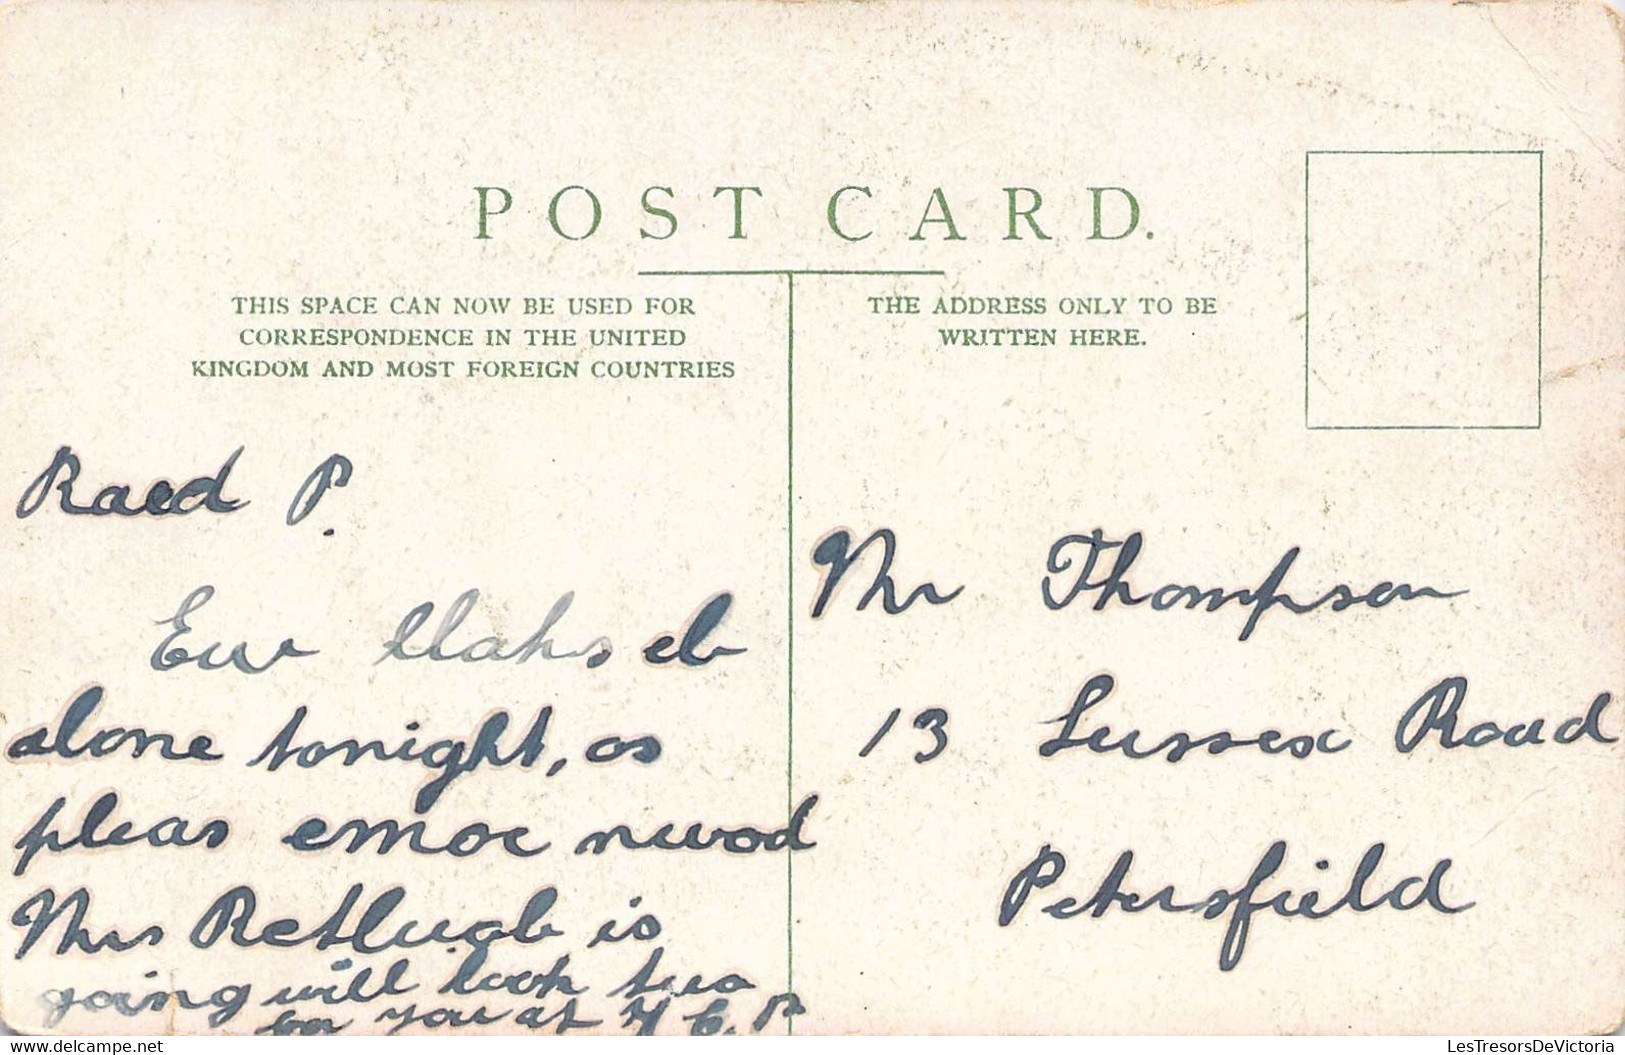 POST CARD.
THIS SPACE CAN NOW BE USED FOR
CORRESPONDENCE IN THE UNITED
KINGDOM AND MOST FOREIGN COUNTRIES
THE ADDRESS ONLY TO BE
WRITTEN HERE.
Raed P.
Ew llahs eb
alone tonight, os
pleas emoc nwod
Mrs Retluob is
going will look
for you at
Mr Thompson
13 Sussex Road
Petersfield
delcampe.net
LesTresorsDeVictoria